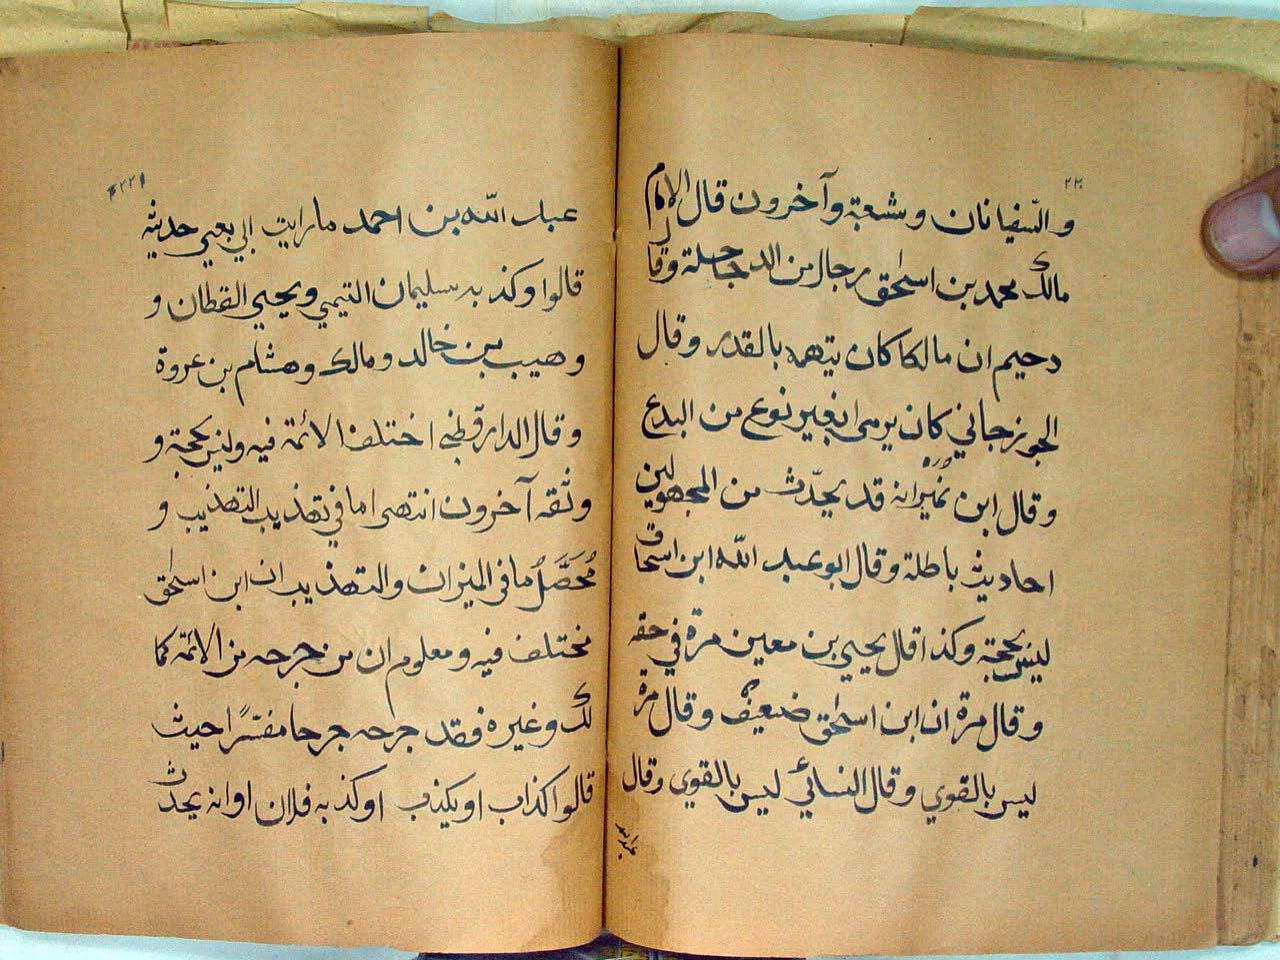 ٢٢٠
والسّفيانان وشعبة وآخرون قال الامام
مالك محمد بن اسحٰق رجال من الدجاجلة وقال
دحيم ان مالكا كان يتهمه بالقدر وقال
الجوزجاني كان يرمى بغير نوع من البدع
وقال ابن نمير انه قد يحدّث من المجهولين
احاديث باطلة وقال ابو عبد الله ابن اسحاق
ليس بحجة وكذا قال يحيي بن معين مرة في حقه
وقال مرة ان ابن اسحٰق ضعيف وقال مرة
ليس بالقوي وقال النسائي ليس بالقوي وقال
عبد الله
٢٢١
عبد الله بن احمد ما رايت ابي يعي حديثه
قالوا وكذبه سليمان التيمي ويحيي القطان و
وهيب بن خالد ومالك وهشام بن عروة
وقال الدارقطني اختلف الائمة فيه وليس بحجة و
وثقه آخرون انتهى اما في تهذيب التهذيب و
مُحَصَّلُ ما في الميزان والتهذيب ان ابن اسحٰق
مختلف فيه ومعلوم ان من جرحه من الائمة كما
لك وغيره فقد جرحه جرحا مفسّرًا حيث
قالوا كذاب او يكذب او كذبه فلان او انه يحدث